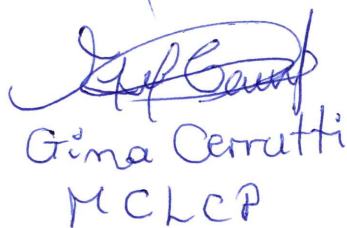 Gina Cerrutti
MCLCP